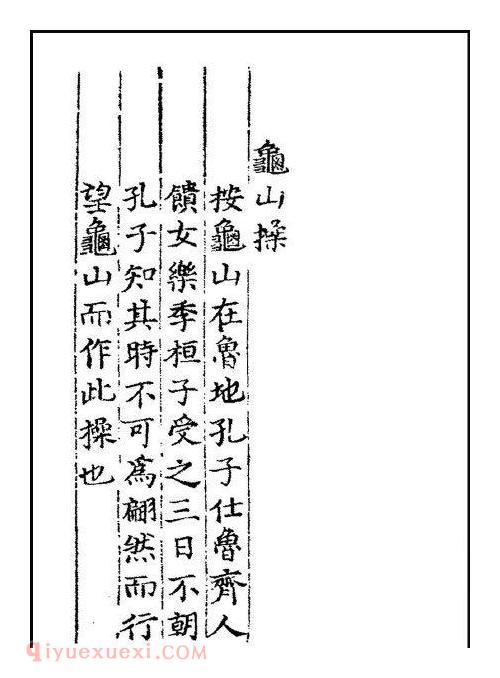 龜山操
按龜山在魯地孔子仕魯齊人
饋女樂季桓子受之三日不朝
孔子知其時不可爲翩然而行
望龜山而作此操也
qiyuexuexi.com